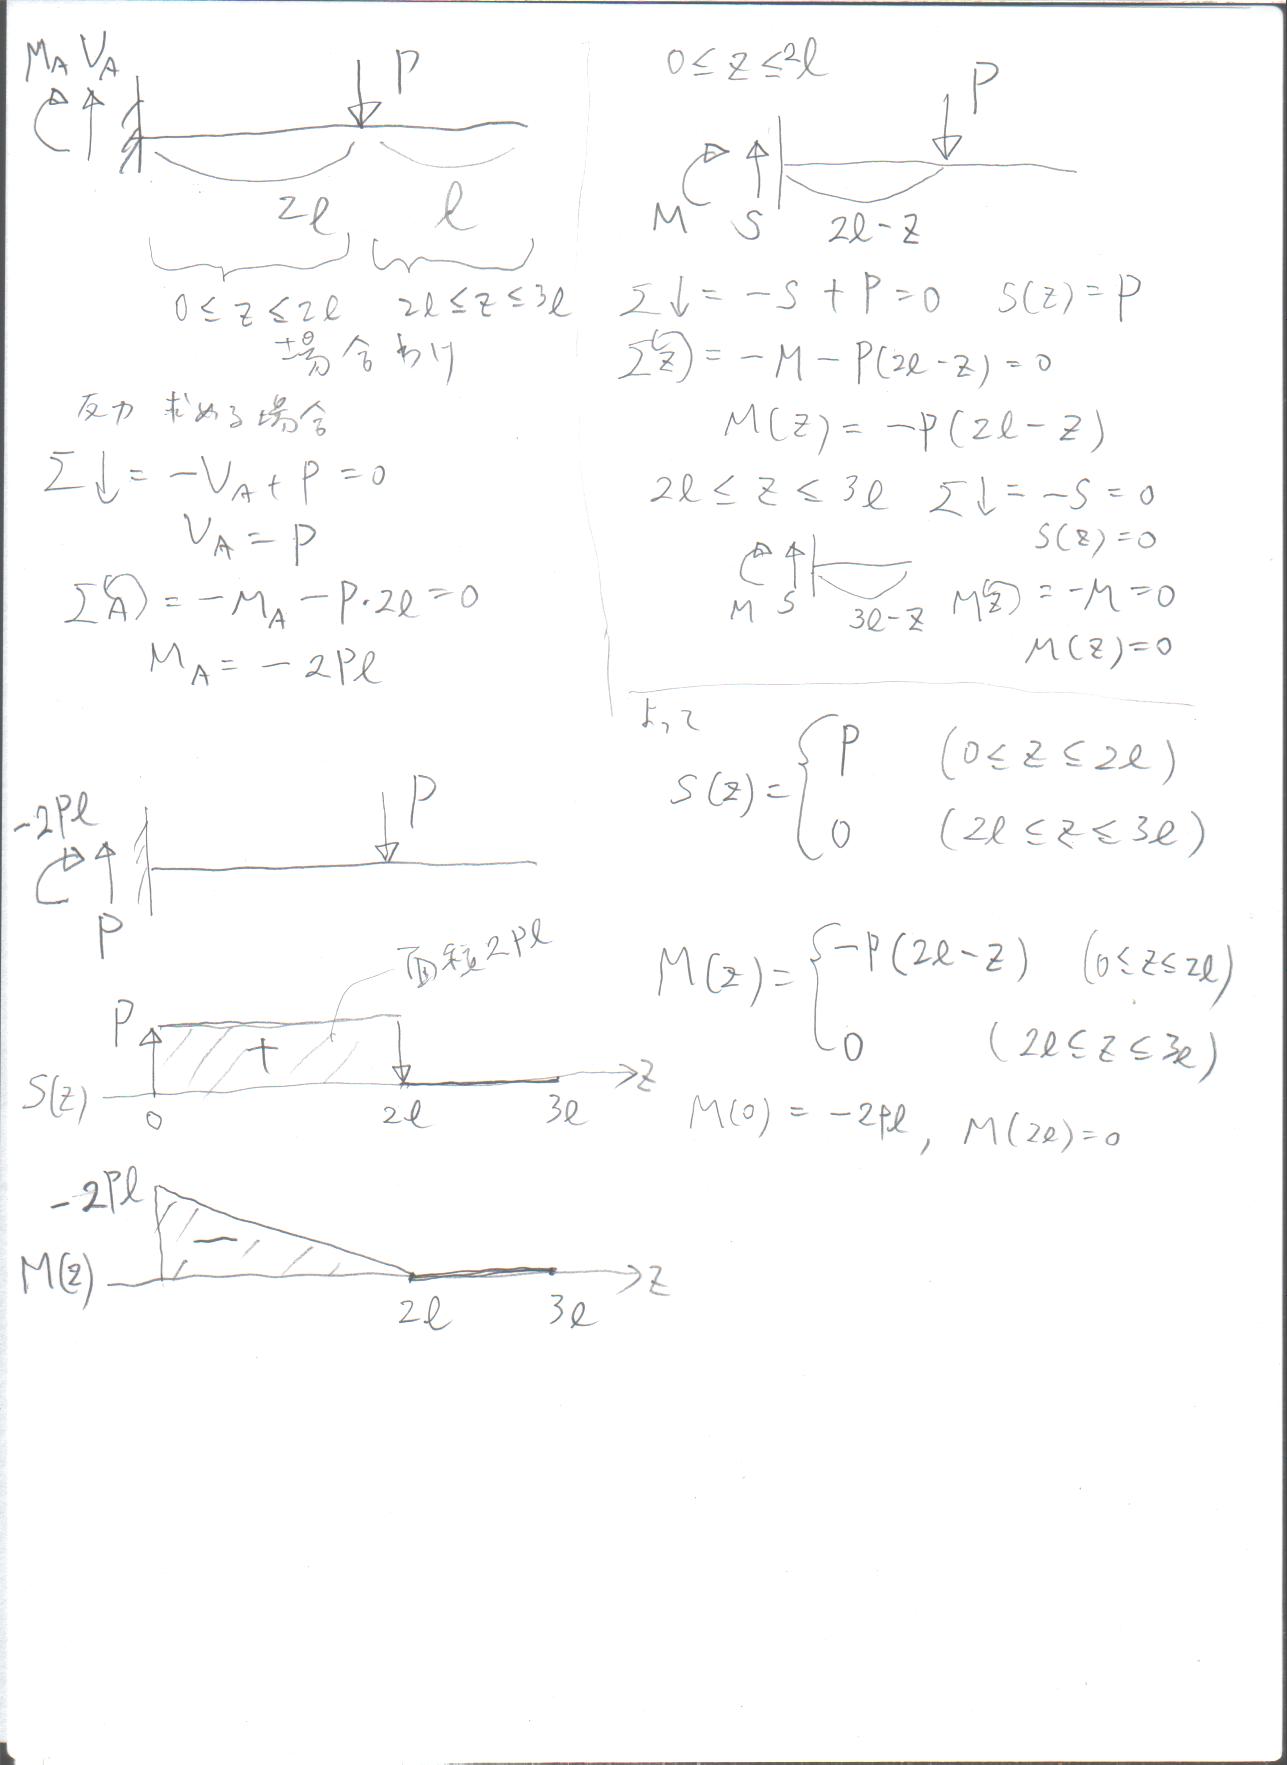 M_A V_A P
2l l
0≤z≤2l 2l≤z≤3l
場合わけ
反力 求める場合
Σ↓= -V_A + P = 0
V_A = P
Σ(A) = -M_A - P・2l = 0
M_A = - 2Pl
-2Pl P
P
面積2Pl
P +
S(z) 0 2l 3l z
-2Pl −
M(z) 2l 3l z
0≤z≤2l
P
M S 2l-z
Σ↓= -S + P = 0 S(z) = P
Σ(z) = -M - P(2l-z) = 0
M(z) = -P(2l-z)
2l≤z≤3l Σ↓= -S = 0
S(z)=0
M S 3l-z M(z) = -M = 0
M(z)=0
よって
S(z) = { P (0≤z≤2l)
0 (2l≤z≤3l)
M(z) = { -P(2l-z) (0≤z≤2l)
0 (2l≤z≤3l)
M(0) = -2Pl, M(2l)=0